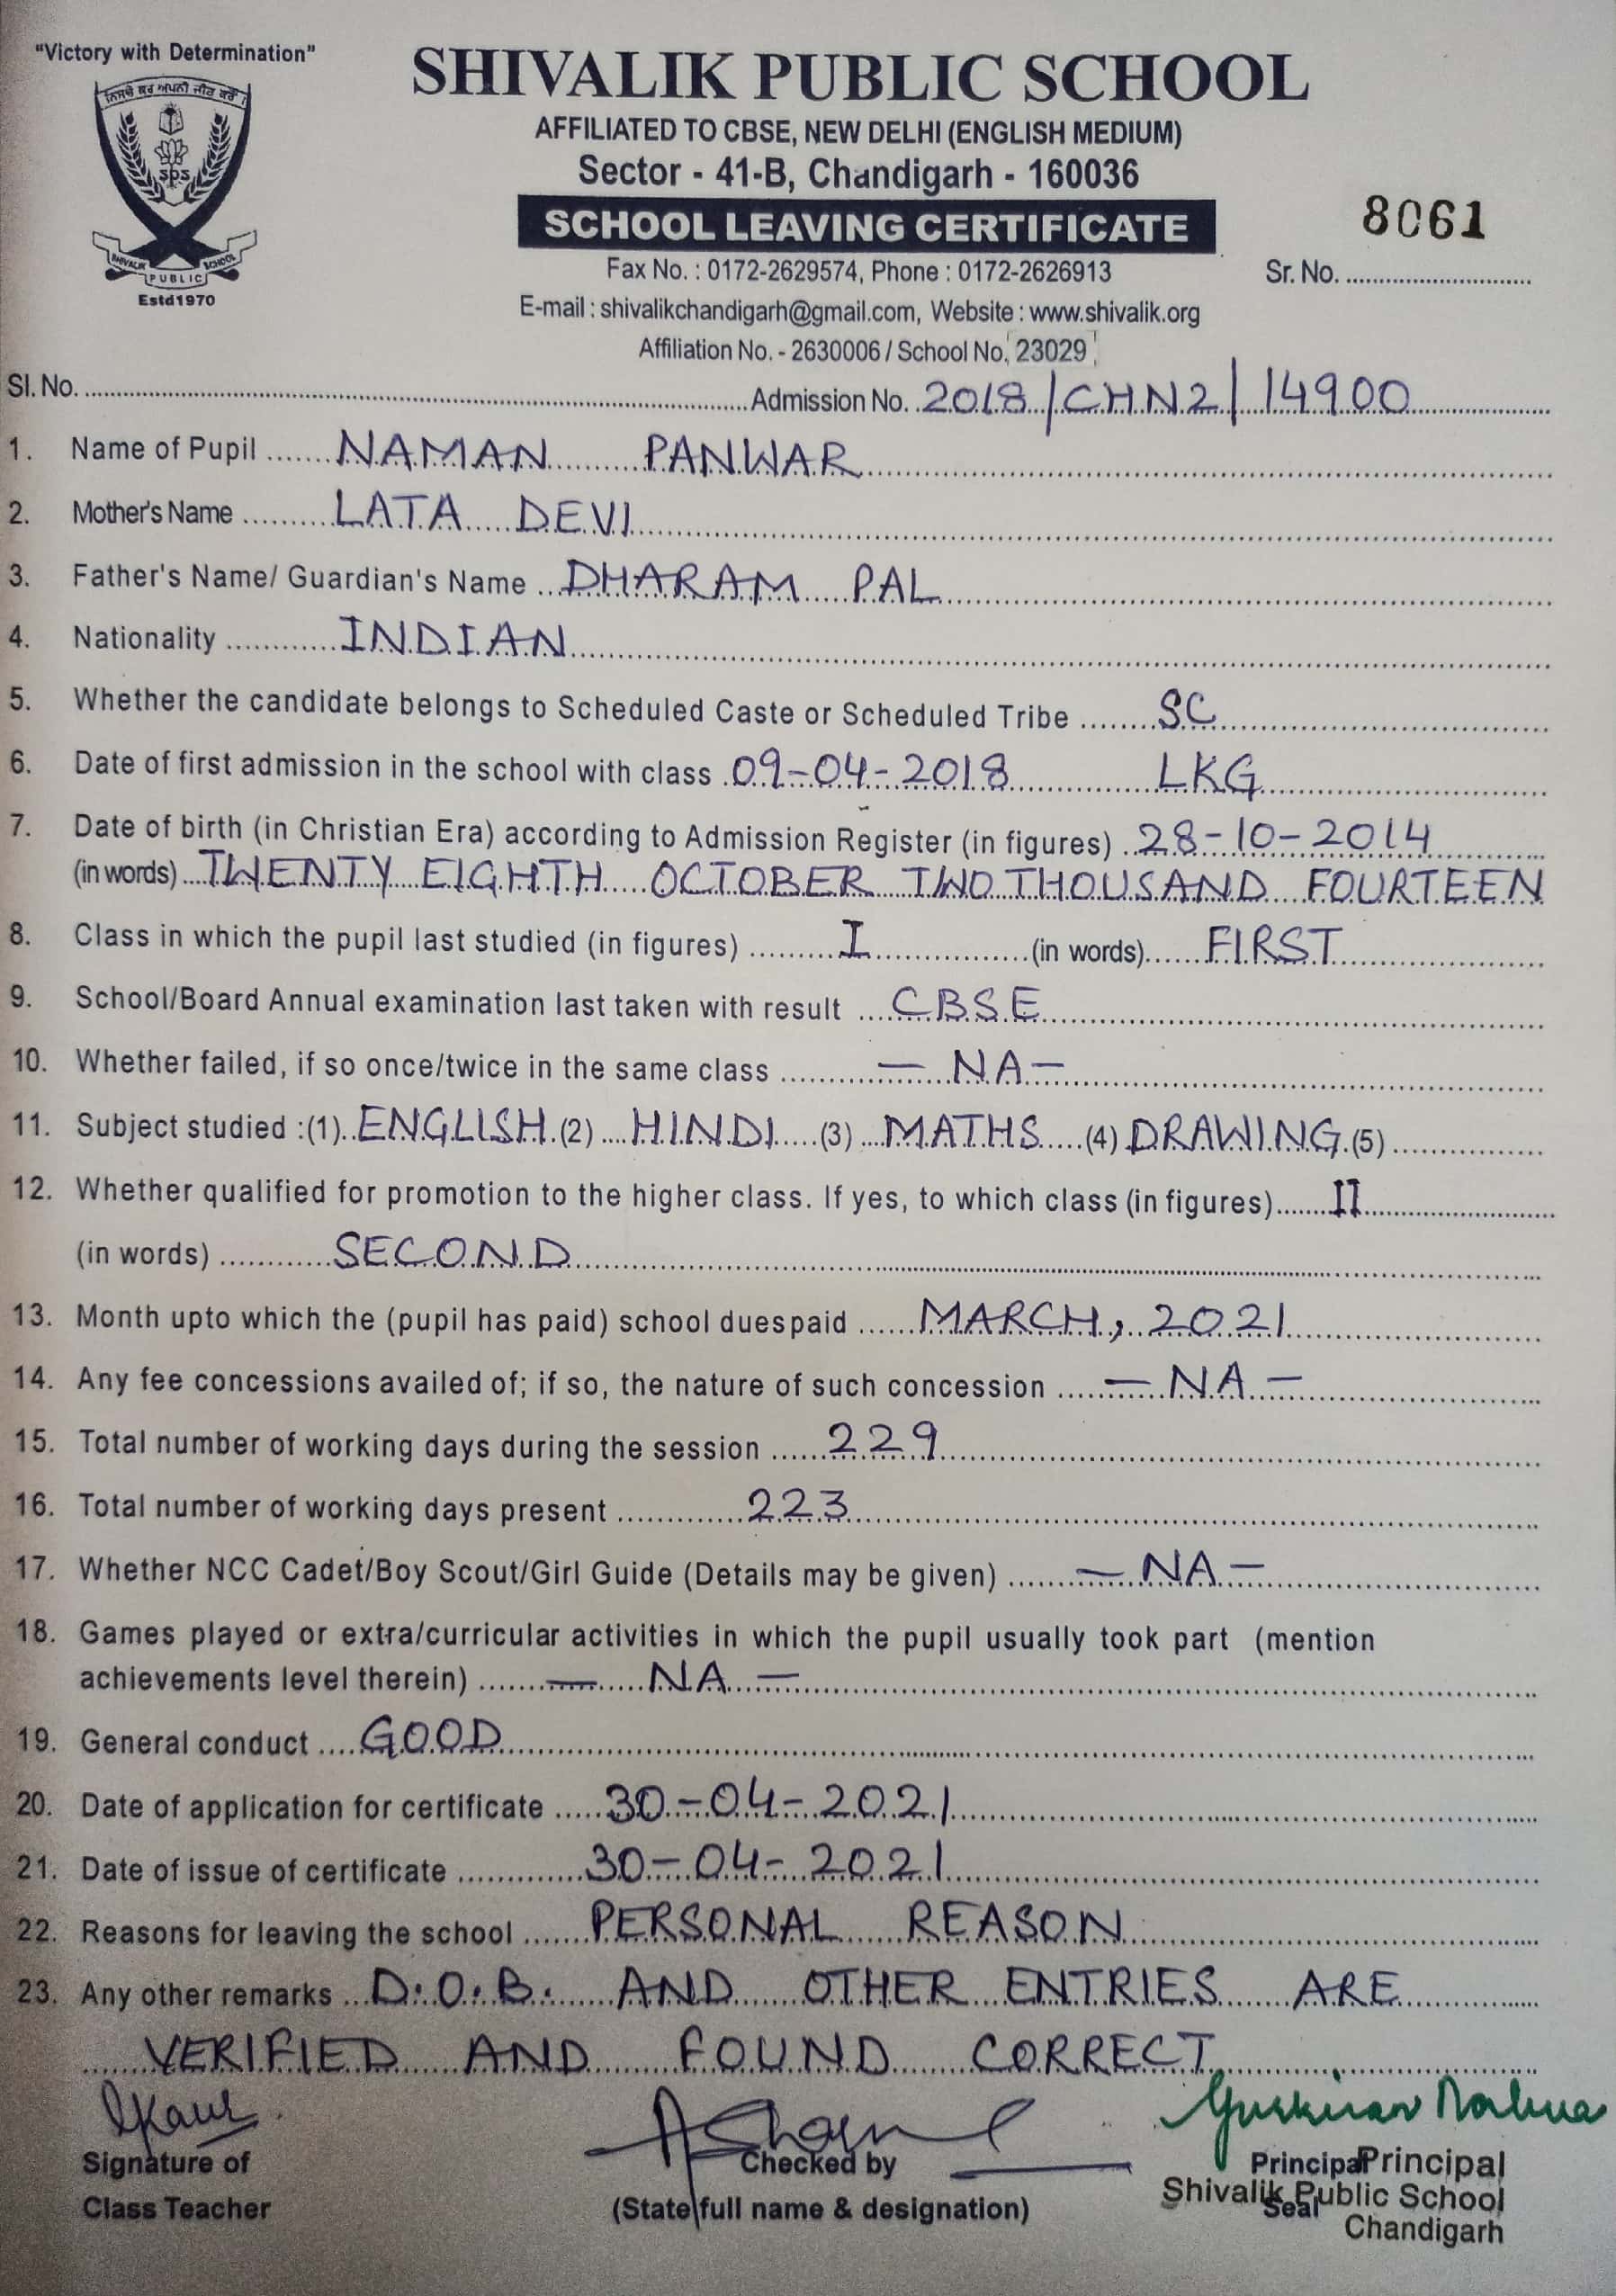 "Victory with Determination"
SHIVALIK PUBLIC SCHOOL
AFFILIATED TO CBSE, NEW DELHI (ENGLISH MEDIUM)
Sector - 41-B, Chandigarh - 160036
SCHOOL LEAVING CERTIFICATE
8061
Fax No. : 0172-2629574, Phone : 0172-2626913
Sr. No.
E-mail : shivalikchandigarh@gmail.com, Website : www.shivalik.org
Affiliation No. - 2630006 / School No. 23029
sps
SHIVALIK PUBLIC SCHOOL
Estd1970
Sl. No. Admission No. 2018/CHN2/14900
1. Name of Pupil NAMAN PANWAR
2. Mother's Name LATA DEVI
3. Father's Name/ Guardian's Name DHARAM PAL
4. Nationality INDIAN
5. Whether the candidate belongs to Scheduled Caste or Scheduled Tribe SC
6. Date of first admission in the school with class 09-04-2018 LKG
7. Date of birth (in Christian Era) according to Admission Register (in figures) 28-10-2014
(in words) TWENTY EIGHTH OCTOBER TWO THOUSAND FOURTEEN
8. Class in which the pupil last studied (in figures) I (in words) FIRST
9. School/Board Annual examination last taken with result CBSE
10. Whether failed, if so once/twice in the same class — NA —
11. Subject studied :(1) ENGLISH (2) HINDI (3) MATHS (4) DRAWING (5)
12. Whether qualified for promotion to the higher class. If yes, to which class (in figures) II
(in words) SECOND
13. Month upto which the (pupil has paid) school duespaid MARCH, 2021
14. Any fee concessions availed of; if so, the nature of such concession — NA —
15. Total number of working days during the session 229
16. Total number of working days present 223
17. Whether NCC Cadet/Boy Scout/Girl Guide (Details may be given) — NA —
18. Games played or extra/curricular activities in which the pupil usually took part (mention
achievements level therein) — NA —
19. General conduct GOOD
20. Date of application for certificate 30-04-2021
21. Date of issue of certificate 30-04-2021
22. Reasons for leaving the school PERSONAL REASON
23. Any other remarks D.O.B. AND OTHER ENTRIES ARE
VERIFIED AND FOUND CORRECT
Signature of Checked by Principal Principal
Class Teacher (State full name & designation) Seal Shivalik Public School
Chandigarh